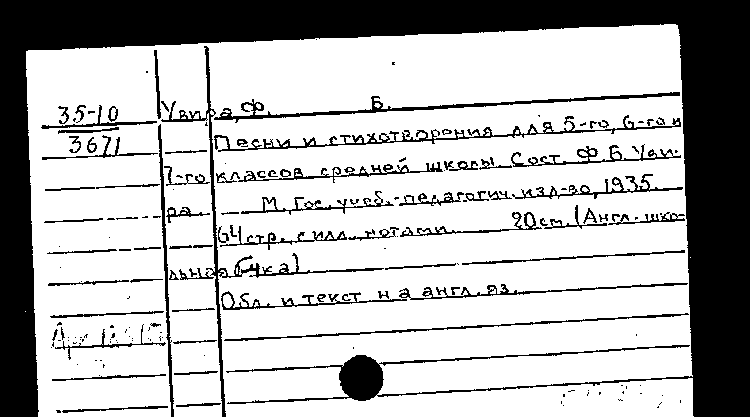 35-10 Уаира, Ф. Б.
3671 Песни и стихотворения для 5-го, 6-го и
7-го классов средней школы. Сост. Ф. Б. Уаи-
ра. М., Гос. учеб.-педагогич. изд-во, 1935.
64 стр., с илл., нотами. 20 см. (Англ. шко-
льная б-чка)
Обл. и текст на англ. яз.